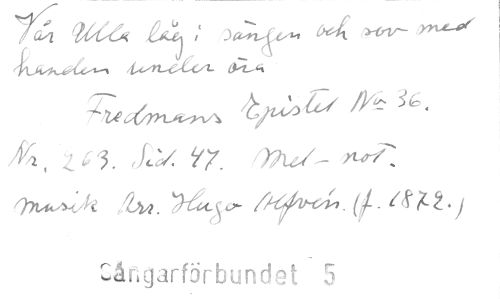 Vår Ulla låg i sängen och sov med
handen under öra
Fredmans Epistel No 36.
Nr. 263. Sid. 47. Mel-not.
musik Arr. Hugo Alfvén. (f. 1872.)
Sångarförbundet 5